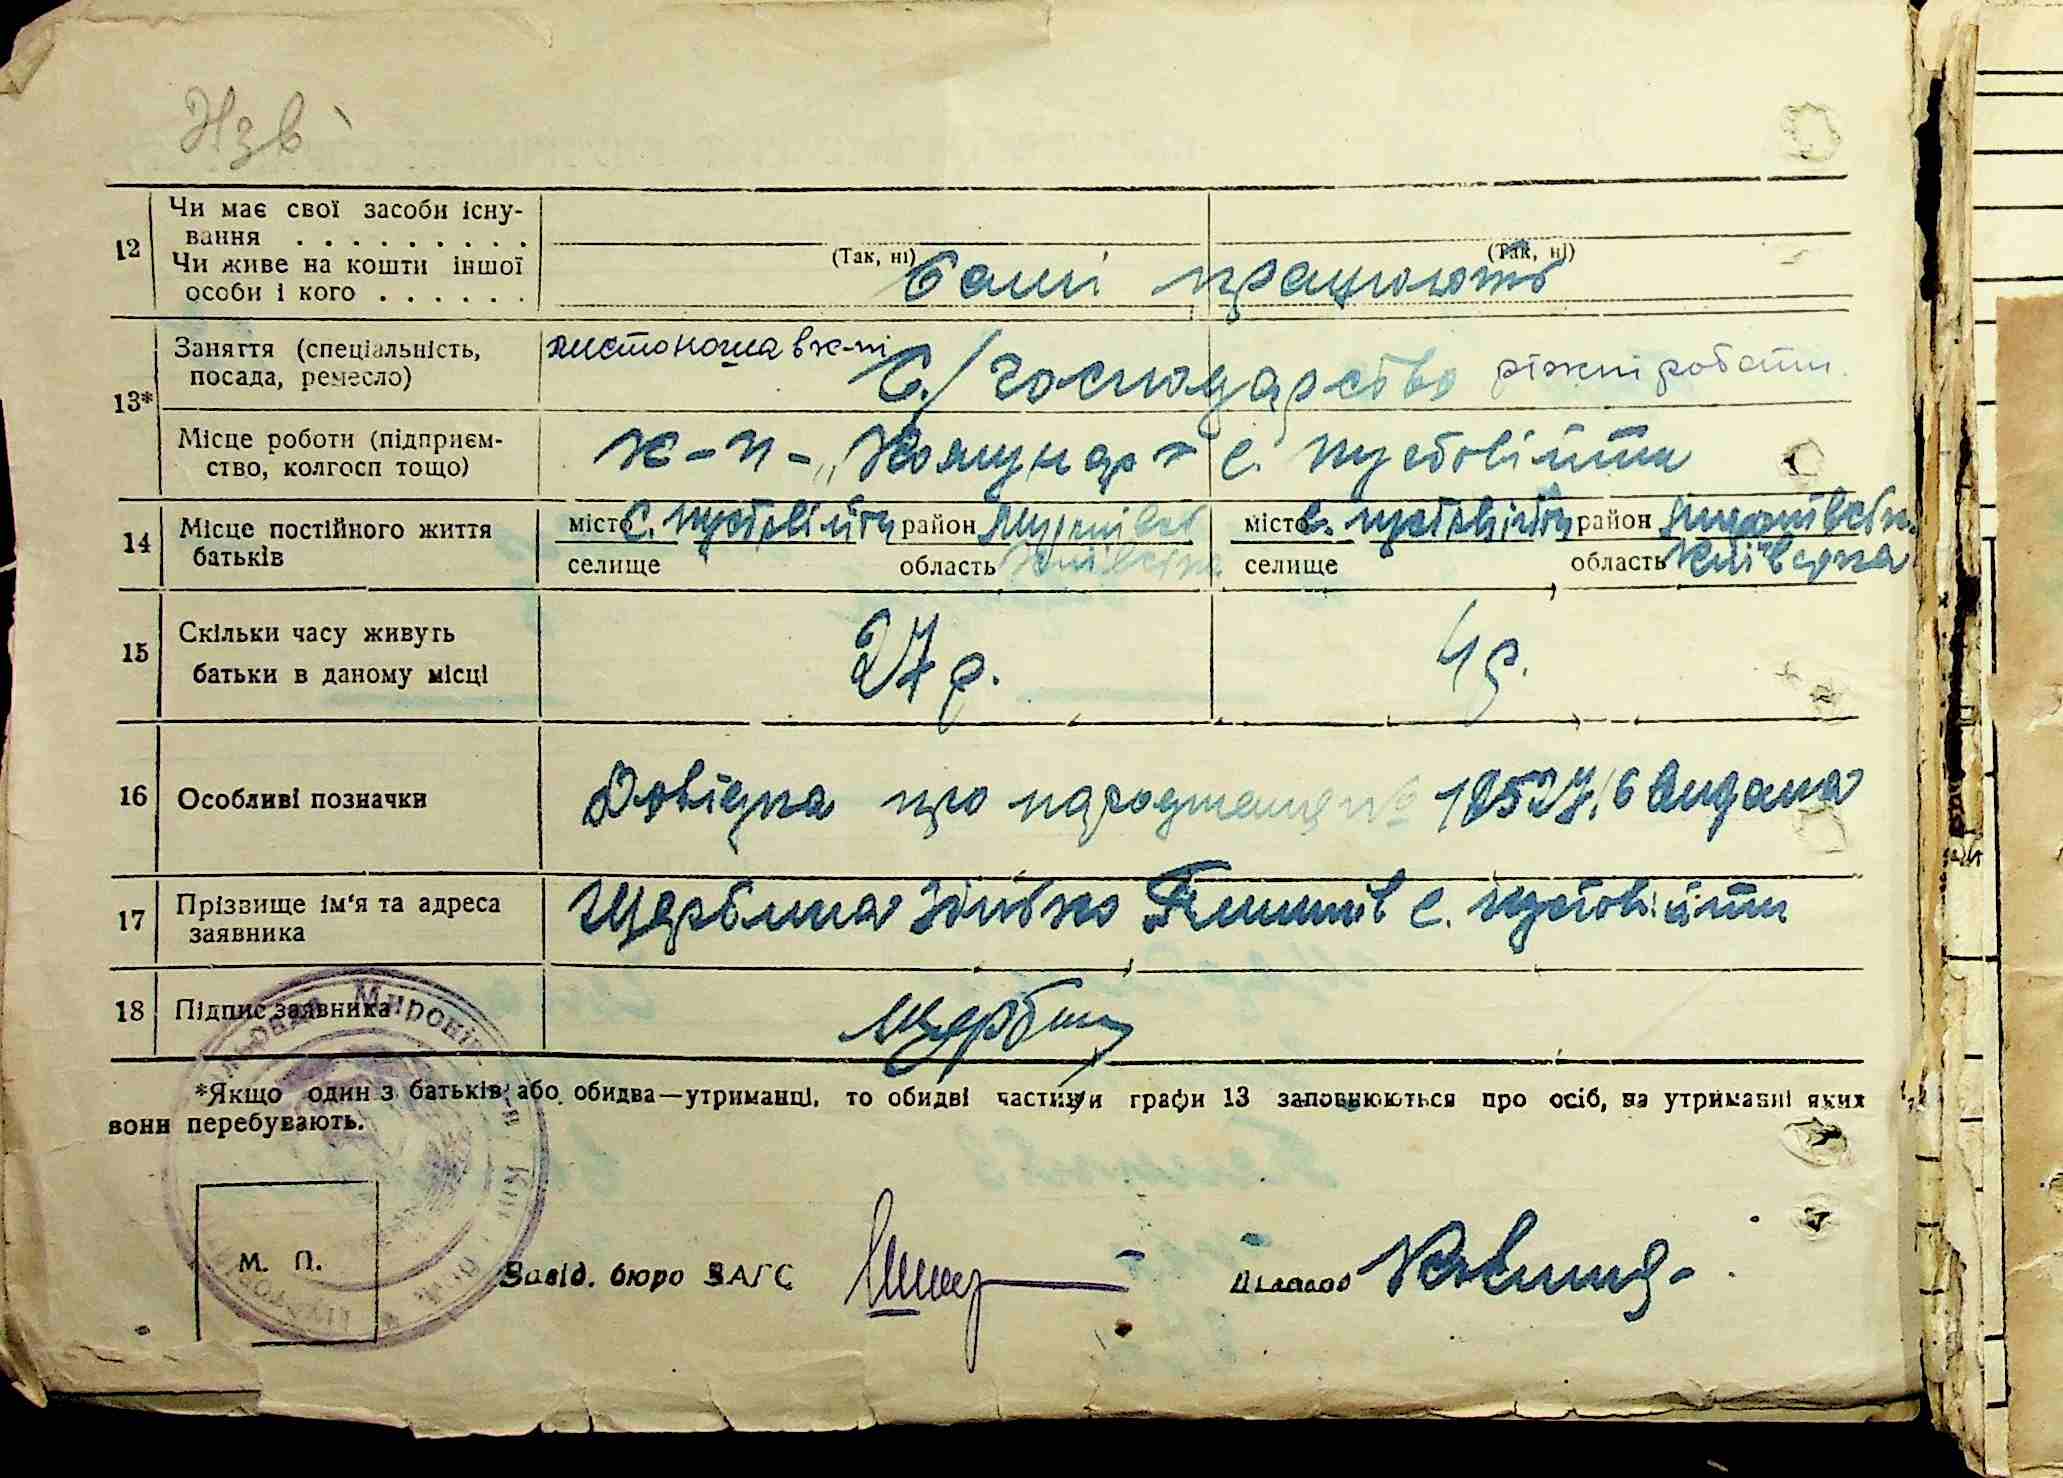 Нзв
12
Чи має свої засоби існу-
вання . . . . . . . . .
Чи живе на кошти іншої
особи і кого . . . . . .
(Так, ні)
(Так, ні)
Самі працюють
13*
Заняття (спеціальність,
посада, ремесло)
листоноша в к-пі
С/господарство
ріжні роботи.
Місце роботи (підприєм-
ство, колгосп тощо)
к-п- „Комунар" с. Пустовійти
14
Місце постійного життя
батьків
місто с. Пустовійти район Миронівськ
селище область Київська
місто с. Пустовійти район Миронівськ.
селище область Київська
15
Скільки часу живуть
батьки в даному місці
27 р.
4 р.
16
Особливі позначки
Довідка про народження № видана
17
Прізвище ім'я та адреса
заявника
Щербина с. Пустовійти
18
Підпис заявника
Щербина
*Якщо один з батьків, або обидва—утриманці, то обидві частини графи 13 заповнюються про осіб, на утриманні яких
вони перебувають.
М. П.
Завід. бюро ЗАГС
Діловод